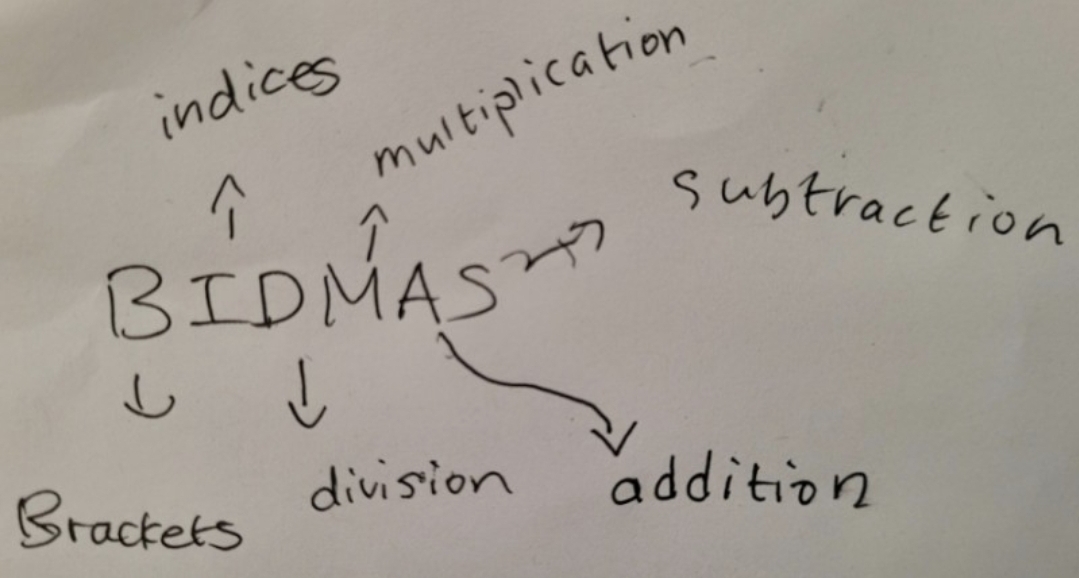 indices
multiplication
subtraction
BIDMAS
Brackets
division
addition